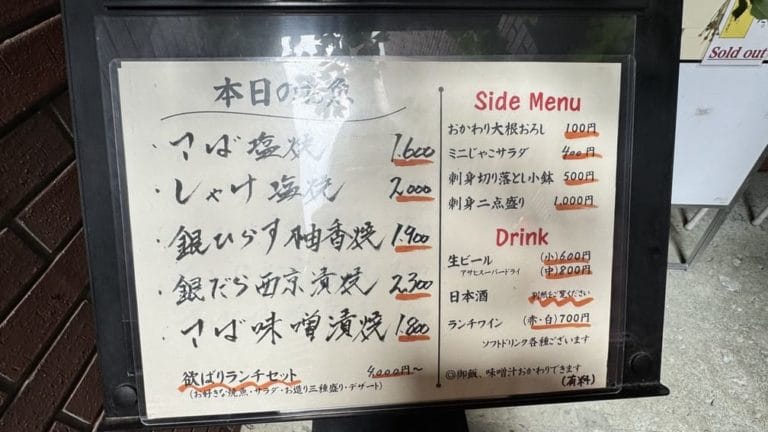 本日の焼魚
・さば塩焼 1.600
・しゃけ塩焼 2.000
・銀ひらす柚香焼 1.900
・銀だら西京漬焼 2.300
・さば味噌漬焼 1.800
欲ばりランチセット 4,000円〜
(お好きな焼魚・サラダ・お造り三種盛り・デザート)
Side Menu
おかわり大根おろし 100円
ミニじゃこサラダ 400円
刺身切り落とし小鉢 500円
刺身二点盛り 1,000円
Drink
生ビール (小)600円
アサヒスーパードライ (中)800円
日本酒 別紙をご覧ください
ランチワイン (赤・白)700円
ソフトドリンク各種ございます
◎御飯、味噌汁おかわりできます
(有料)
Sold out